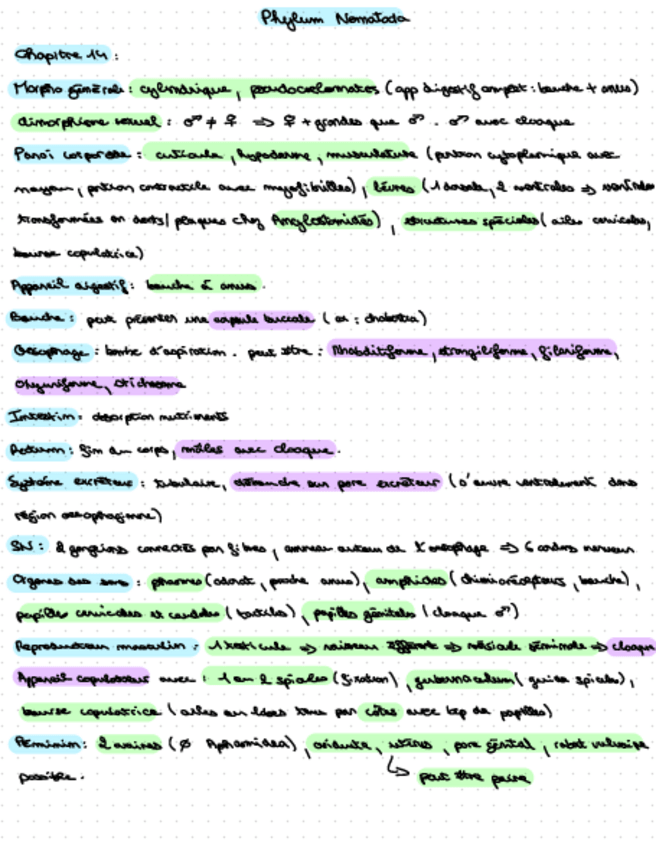 Phylum Nematoda
Chapitre 14 :
Morpho générale : cylindrique, pseudocoelomates (app digestif complet : bouche + anus)
dimorphisme sexuel : ♂ ≠ ♀ => ♀ + grandes que ♂. ♂ avec cloaque
Paroi corporelle : cuticule, hypoderme, musculature (portion cytoplasmique avec
noyau, portion contractile avec myofibrilles), lèvres (1 dorsale, 2 ventrales => ventrales
transformées en dents/plaques chez Ancylostomidés), structures spéciales (ailes cervicales,
bourse copulatrice)
Appareil digestif : bouche à anus.
Bouche : peut présenter une capsule buccale (ex : chabertia)
Oesophage : bombe d'aspiration. peut être : Rhabditiforme, strongiliforme, filariforme,
oxyuriforme, trichosome
Intestin : absorption nutriments
Rectum : fin du corps, mâles avec cloaque.
Système excréteur : tubulaire, débouche sur pore excréteur (s'ouvre ventralement dans
région oesophagienne)
SN : 2 ganglions connectés par fibres, anneau autour de l'oesophage => 6 cordons nerveux
Organes des sens : phasmes (odorat, proche anus), amphides (chimiorécepteurs, bouche),
papilles cervicales et caudales (tactiles), papilles génitales (cloaque ♂)
Reproduction masculin : 1 testicule => vaisseau efférent => vésicule séminale => cloaque
Appareil copulateur avec : 1 ou 2 spicules (fixation), gubernaculum (guide spicules),
bourse copulatrice (ailes ou lobes tenus par côtes avec bcp de papilles)
Féminin : 2 ovaires (∅ Aphasmidea), oviducte, utérus, pore génital, rabat vulvaire
possible.
↳ peut être paire